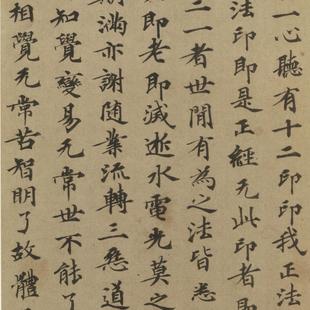 一心聽有十二印印我正法
法印即是正經无此印者即
二一者世間有為之法皆悉
即老即滅逝水電光莫之
滿亦謝随業流轉三惡道
知覺變易无常世不能了
相覺无常苦智明了故體